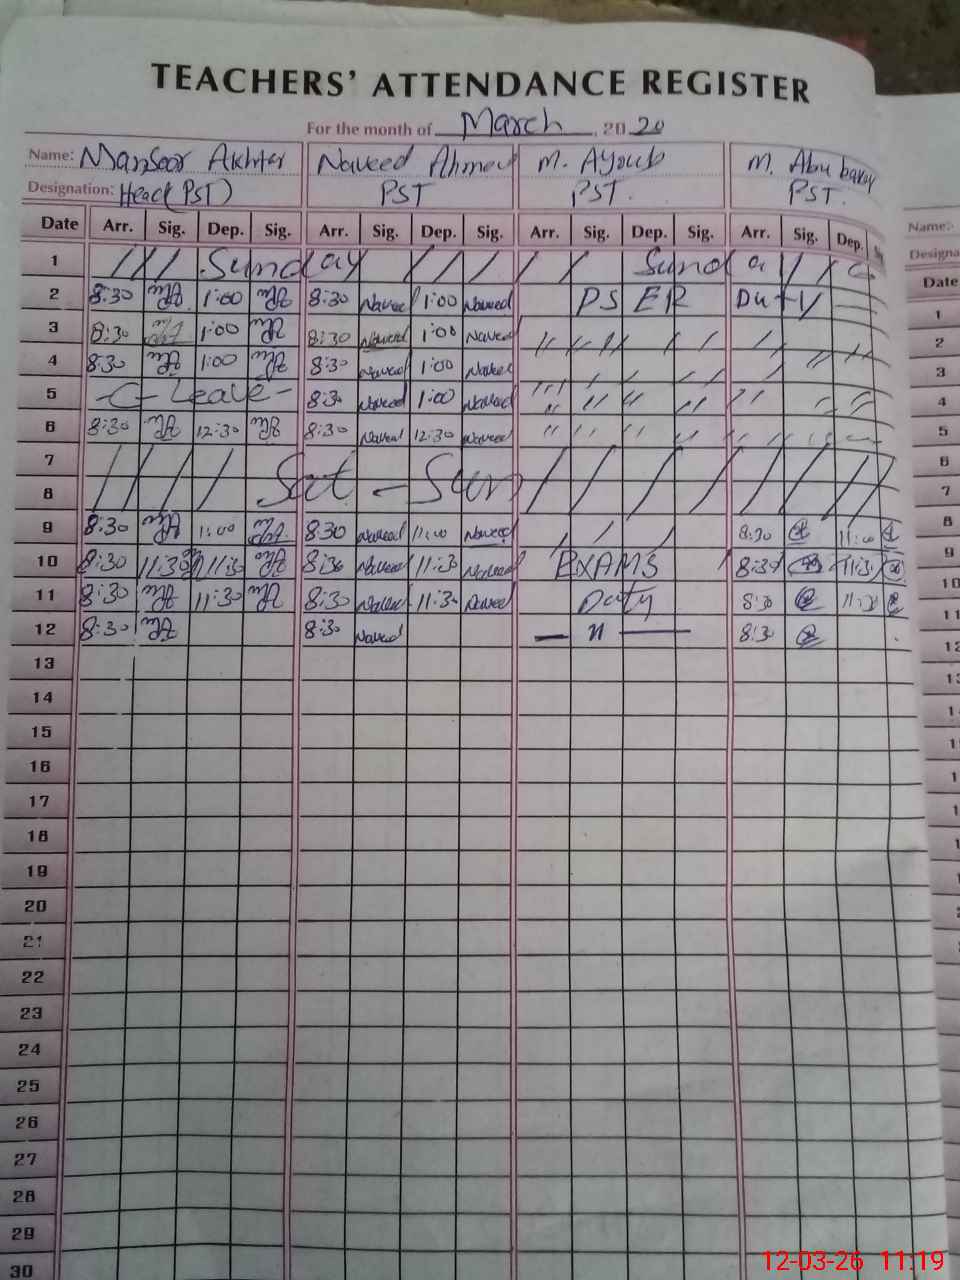 TEACHERS' ATTENDANCE REGISTER
For the month of March, 2020
Name: Mansoor Akhter Naveed Ahmed M. Ayoub M. Abu bakar
Designation: Head (PST) PST PST. PST.
Date Arr. Sig. Dep. Sig. Arr. Sig. Dep. Sig. Arr. Sig. Dep. Sig. Arr. Sig. Dep.
1 Sunday Sunda
2 8:30 1:00 8:30 Naveed 1:00 Naveed PSER Duty
3 8:30 1:00 8:30 Naveed 1:00 Naveed " " " "
4 8:30 1:00 8:30 Naveed 1:00 Naveed
5 -C- Leave- 8:30 Naveed 1:00 Naveed
6 8:30 12:30 8:30 Naveed 12:30 Naveed
7 Sat - Sun
8
9 8:30 11:00 8:30 Naveed 11:00 Naveed 8:30 11:00
10 8:30 11:30 11:30 8:30 Naveed 11:30 Naveed EXAMS 8:30 11:30
11 8:30 11:30 8:30 Naveed 11:30 Naveed Duty 8:30 11:30
12 8:30 8:30 Naveed — " — 8:30
13
14
15
16
17
18
19
20
21
22
23
24
25
26
27
28
29
30
Name:
Designa
Date
1
2
3
4
5
6
7
8
9
10
11
12
12-03-26 11:19